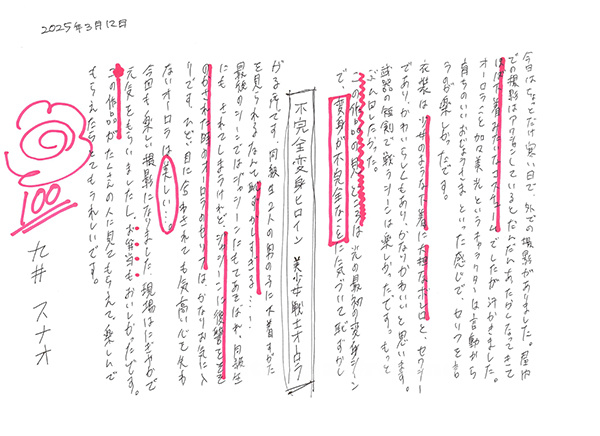 2025年3月12日
不完全変身ヒロイン 美少女戦士オーロラ
今日はちょっとだけ寒い日で、外での撮影がありました。屋内
での撮影はアクションしているとだんだんあたたかくなってきて
ほぼ下着みたいなコスチュームでしたが汗がでました。
オーロラこと加々美光というキャラクターは言動から
育ちのいいおじょうさまといった感じで、セリフを言
うのが楽しかったです。
衣装は少女のような下着に大胆なボレロと、セクシー
であり、かわいらしくもあり、かなりかわいいと思います。
武器の短剣で戦うシーンは楽しかったです。もっと
この作品の見どころは光の最初の変身シーン
で、変身が不完全なことに気づいて恥ずかし
がる所です。同級生2人の男の子に下着すがた
を見られるなんて恥ずかしすぎる…
最後のシーンではジャシーンにもあそばれ、同級生
にもおそわれてしまうけれど、ジャシーンに復讐をとき
のかされた時のオーロラのセリフは、かなりお気に入
りです。ひどい目に合わされても気高い心を失わ
ないオーロラは美しい…。
今回も楽しい撮影になりました。現場はにぎやかで
元気をもらいましたし、お弁当もおいしかったです。
この作品がたくさんの人に見てもらえて、楽しんで
もらえたらとてもうれしいです。
九井 スナオ
100